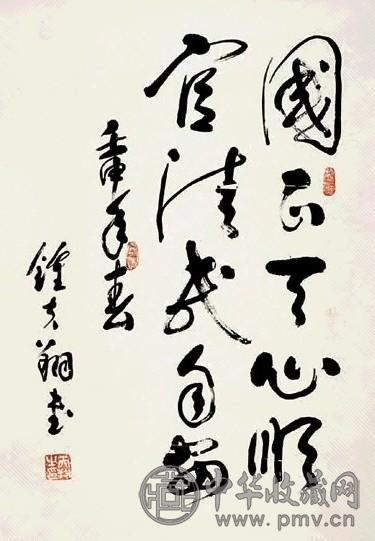 國正天心順
官清民自
壬申年春
鍾克翔書
中华收藏网
www.pmv.cn